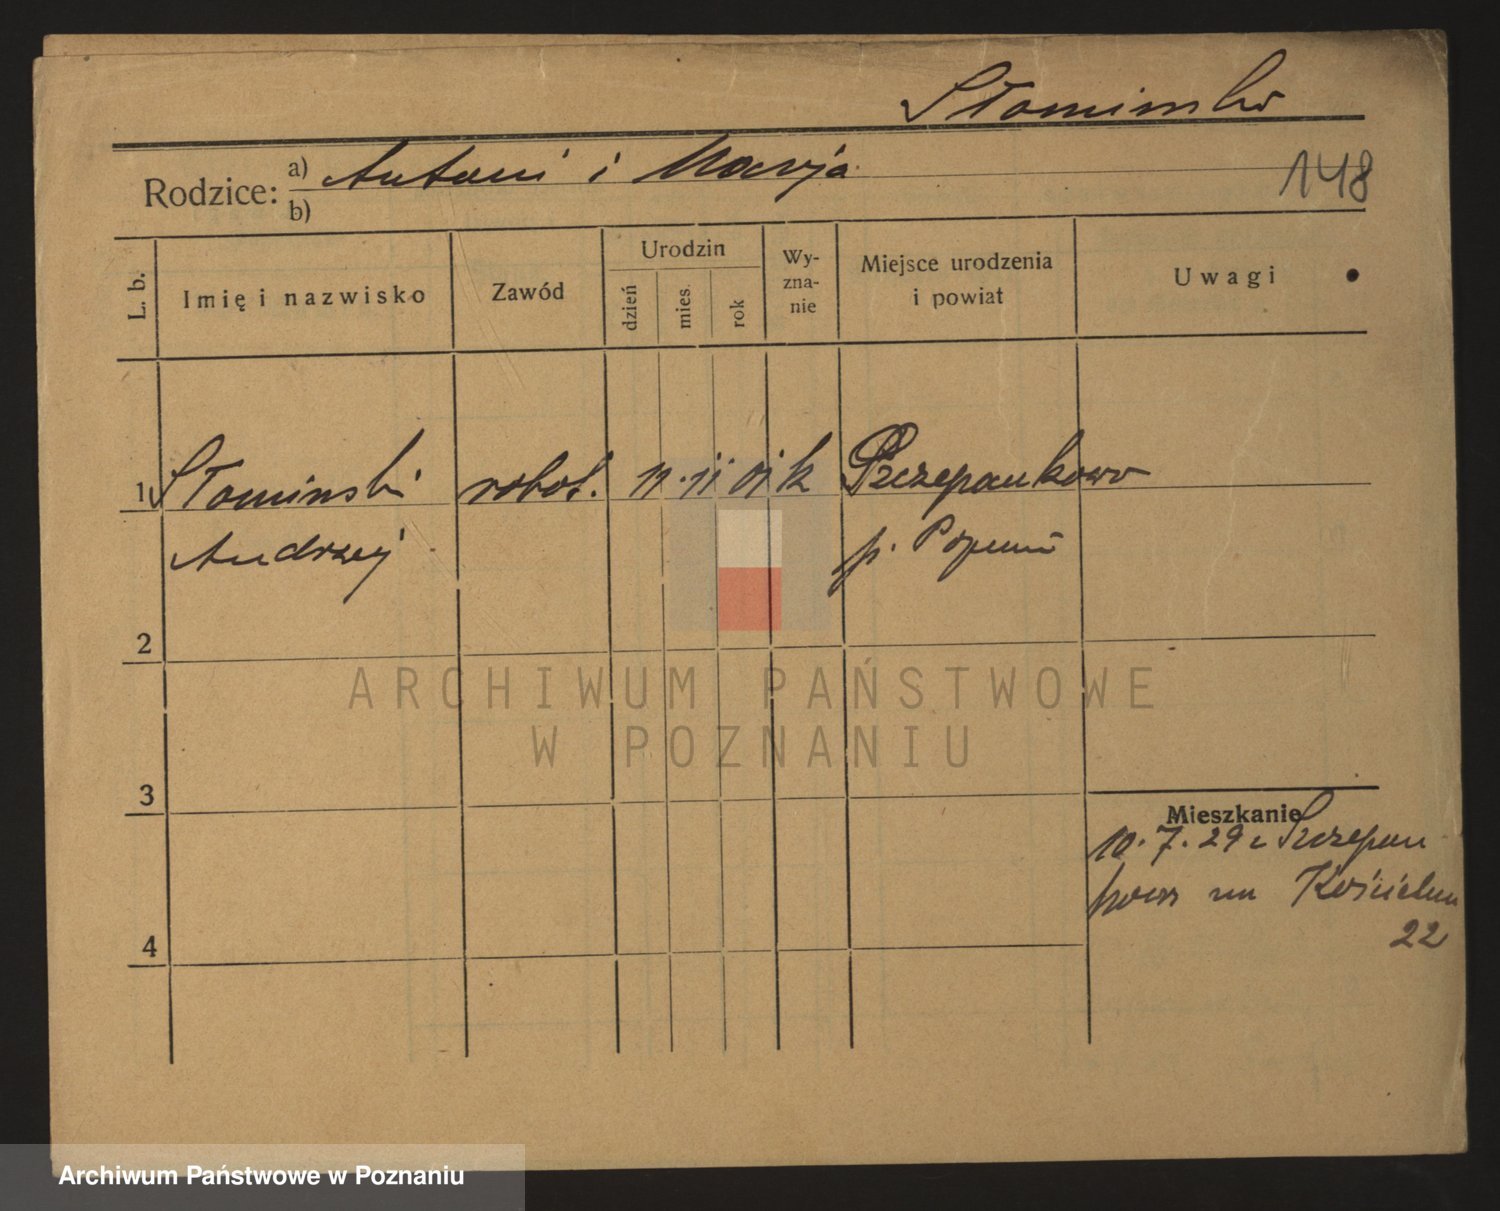 Słominski
Rodzice: a) Antoni i Marja
148
b)
L. b. Imię i nazwisko Zawód Urodzin dzień mies. rok Wy-zna-nie Miejsce urodzenia i powiat Uwagi
1 Słominski robot. 11. 11 01 k Szczepankowo
Andrzej p. Poznań
2
ARCHIWUM PAŃSTWOWE
W POZNANIU
3
Mieszkanie
10. 7. 29 z Szczepan
kowo Kościelna
22
4
Archiwum Państwowe w Poznaniu